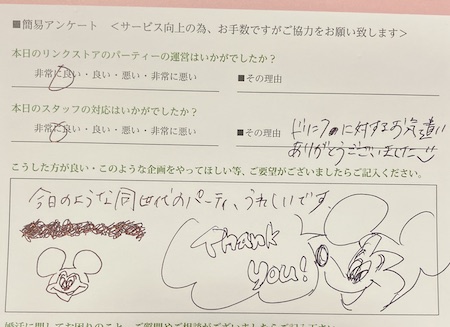 ■簡易アンケート ＜サービス向上の為、お手数ですがご協力をお願い致します＞
本日のリンクストアのパーティーの運営はいかがでしたか？
非常に良い・良い・悪い・非常に悪い ■その理由
本日のスタッフの対応はいかがでしたか？
非常に良い・良い・悪い・非常に悪い ■その理由 ドリンクに対するお気遣い
ありがとうございました
こうした方が良い・このような企画をやってほしい等、ご要望がございましたらご記入ください。
今日のような同世代のパーティ、うれしいです
Thank
You!
婚活に関してお困りのこと、ご質問やご相談がございましたらご記入下さい